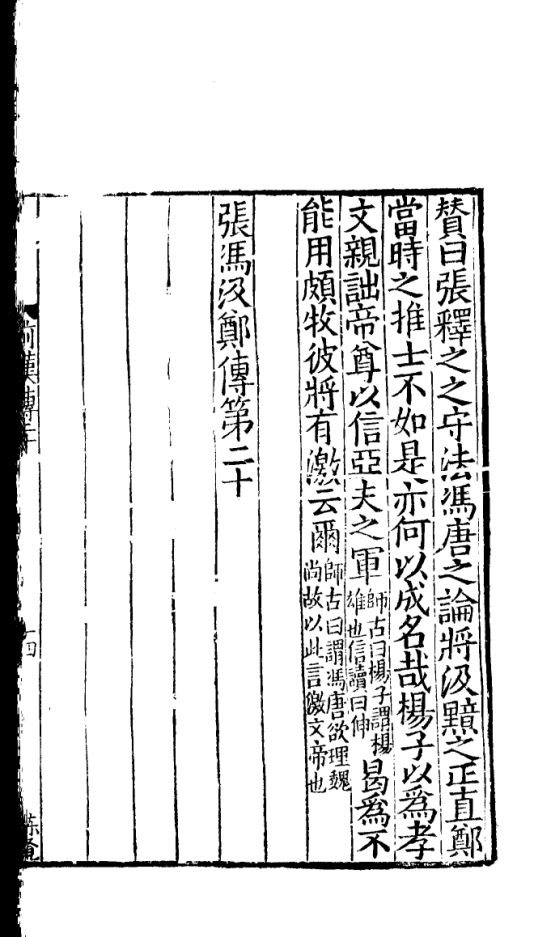 贊曰張釋之之守法馮唐之論將汲黯之正直鄭
當時之推士不如是亦何以成名哉楊子以為孝
文親詘帝尊以信亞夫之軍師古曰楊子謂楊雄也信讀曰伸曷爲不
能用頗牧彼將有激云爾師古曰謂馮唐欲理魏尚故以此言激文帝也
張馮汲鄭傳第二十
前漢傳二十
十四